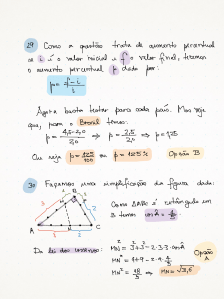 29 Como a questão trata de aumento percentual
se i é o valor inicial e f o valor final, teremos
o aumento percentual p dado por:
p = f - i / i
Agora basta testar para cada país. Mas veja
que, para o Brasil temos:
⇒ p = 2,5 / 2,0 ⇒ p = 1,25
Ou seja p = 125 / 100 ou p = 125% Opção B
30 Façamos uma simplificação da figura dada:
Como ΔABC é retângulo em
B temos
A
B
C
Da lei dos cossenos: MN² = 3² + 2² - 2·3·2·cos
MN² = 9 + 4 - 2·6·
MN² = 18/5 ⇒ MN = √3,6
Opção A